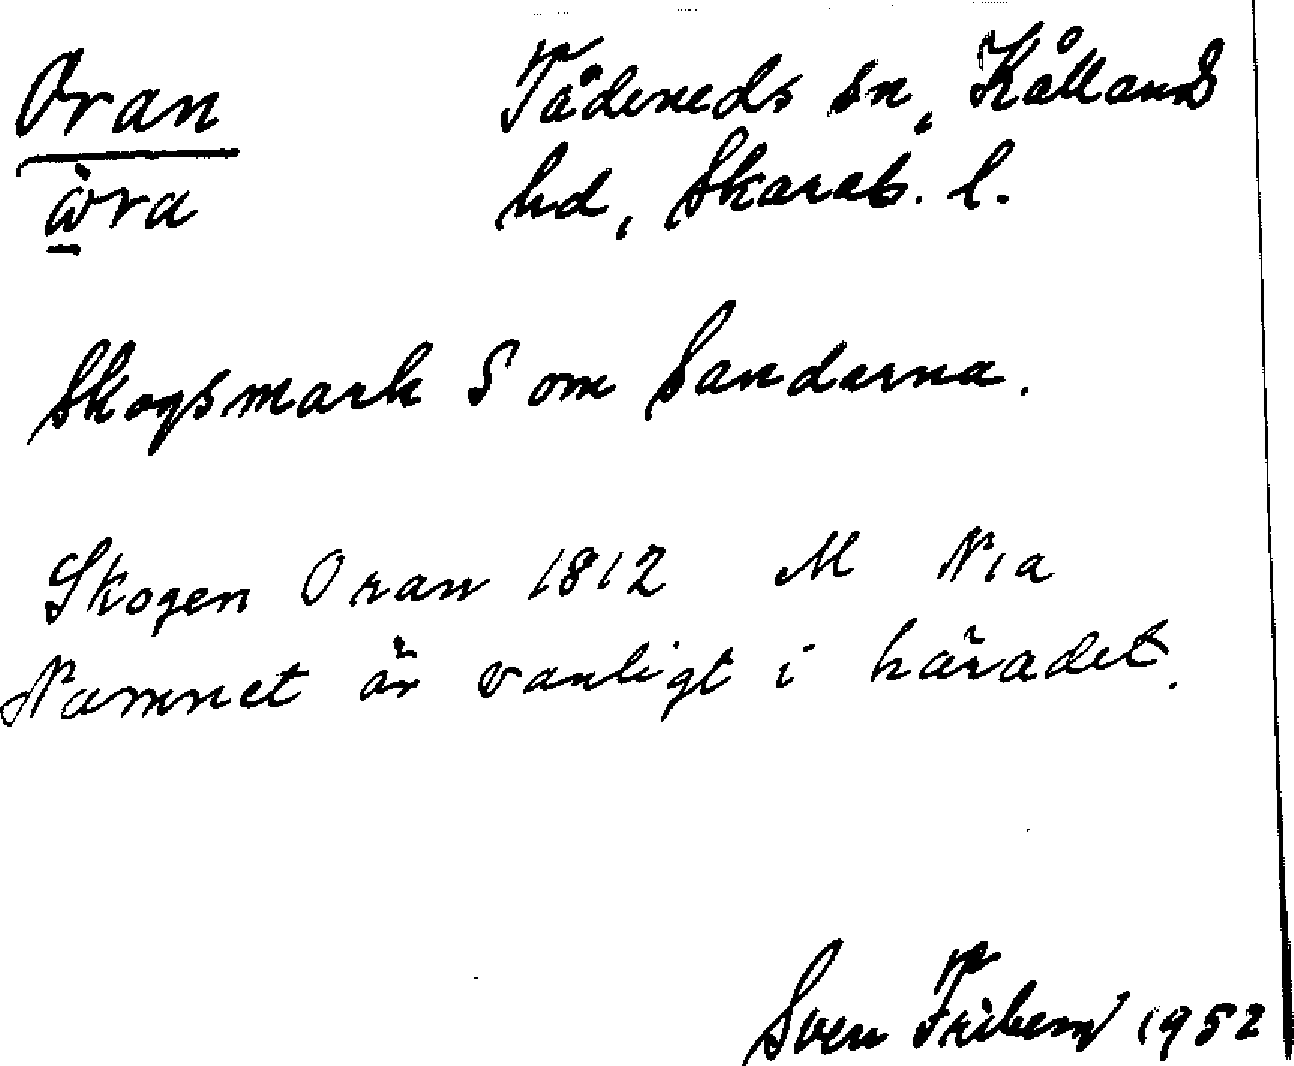 Oran Tådeneds sn, Kållands
ὼra hd, Skarab. l.
Skogsmark S om Sanderna.
Skogen Oran 1812 M N1a
Namnet är vanligt i häradet.
Sven Friberg 1952